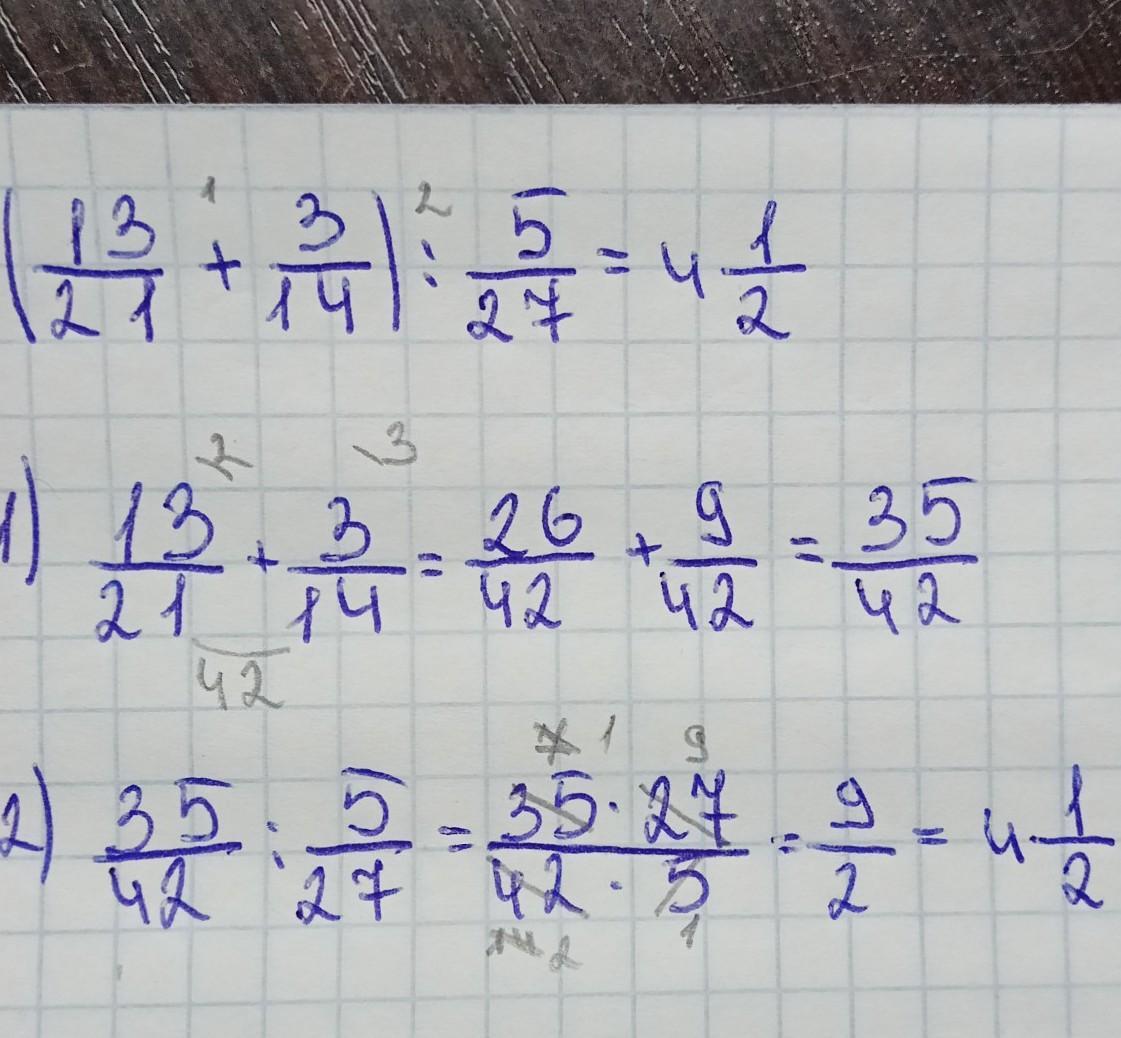 (13/21 + 3/14) : 5/27 = 4 1/2
1 2
2 3
1) 13/21 + 3/14 = 26/42 + 9/42 = 35/42
42
7 1 9
2) 35/42 : 5/27 = 35 · 27/42 · 5 = 9/2 = 4 1/2
14 2 1